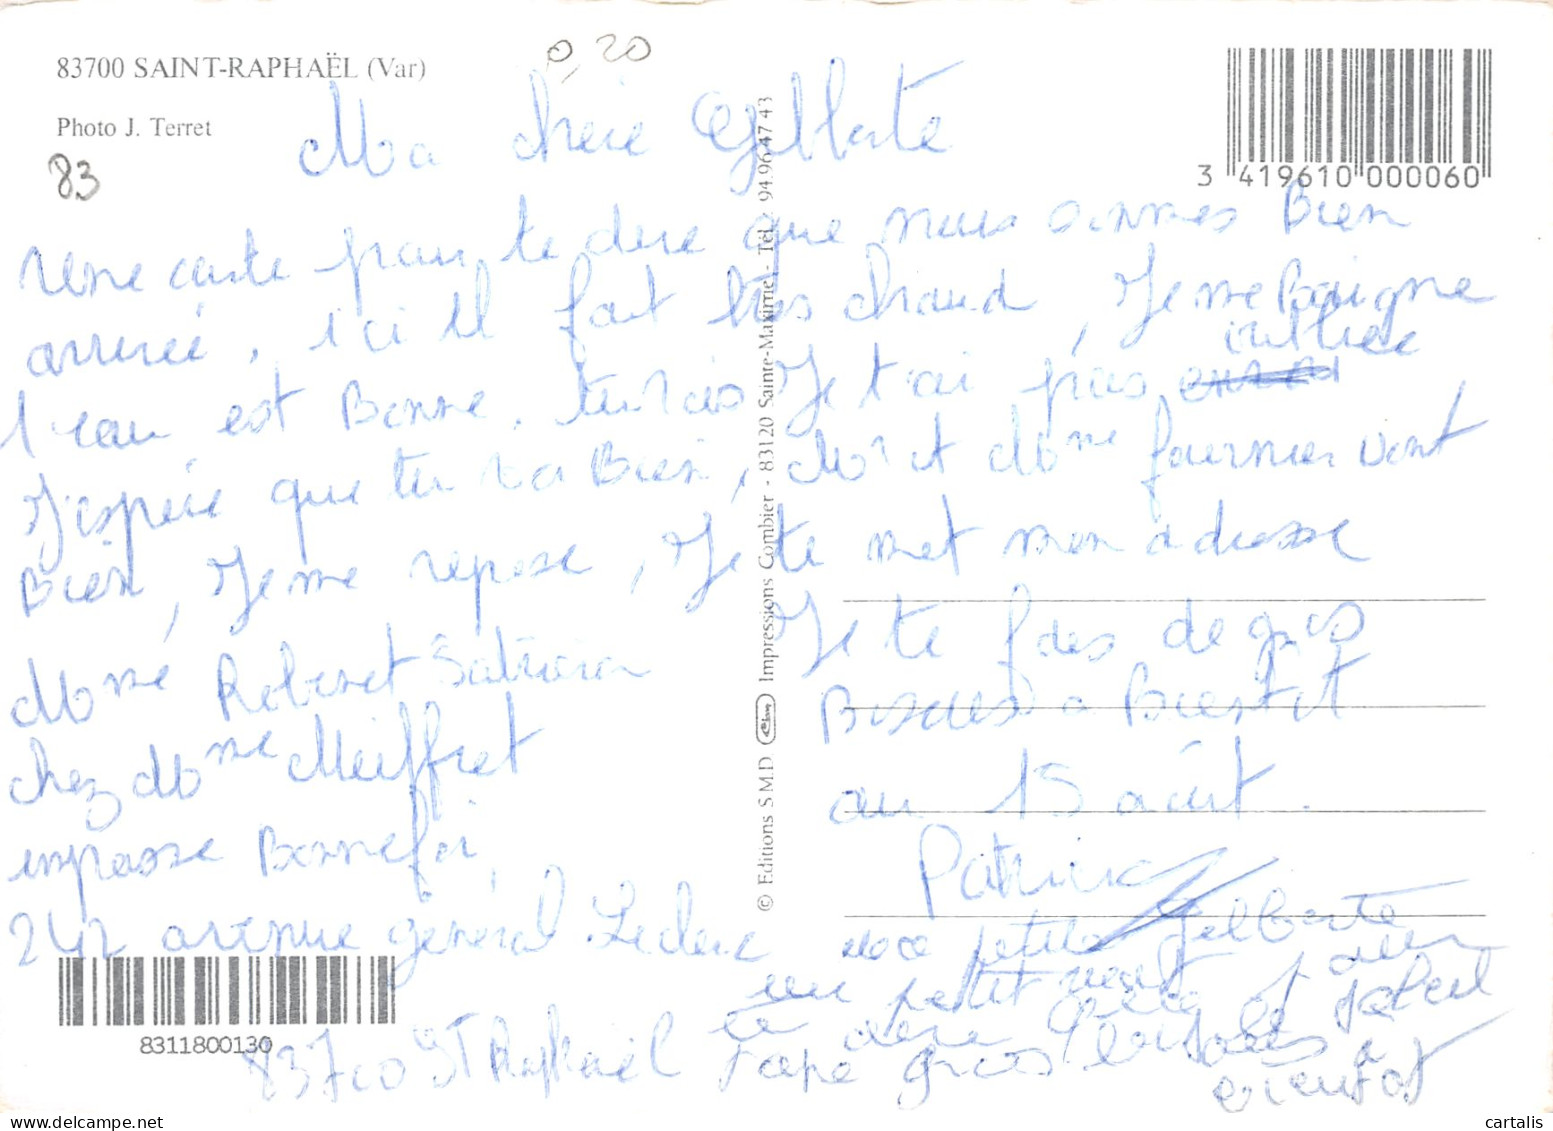 83700 SAINT-RAPHAËL (Var)
0,20
Photo J. Terret
83
3 419610 000060
Ma chere Gilberte
une carte pour te dire que nous sommes Bien
arrivée, ici il fait très chaud, Je me Baigne
l'eau est Bonne. tu vois Je t'ai pas oubliee
J'espére que tu va Bien, Mr et Mme fournier vont
Bien, Je me repose, Je te met mon adresse
Mme Robinet
chez Mme Meiffret
impasse Bonnefoi,
242 avenue général Leclerc
83700 St Raphaël
Je te fais de gros
Bisous a Bientot
au 15 août.
Patricia
petite Gilberte
un petit mot
te dire que
Papé gros
a
Bientot
© Editions S.M.D. Impressions Combier - 83120 Sainte-Maxime - Tél. 94.96.47.43
8311800130
cartalis